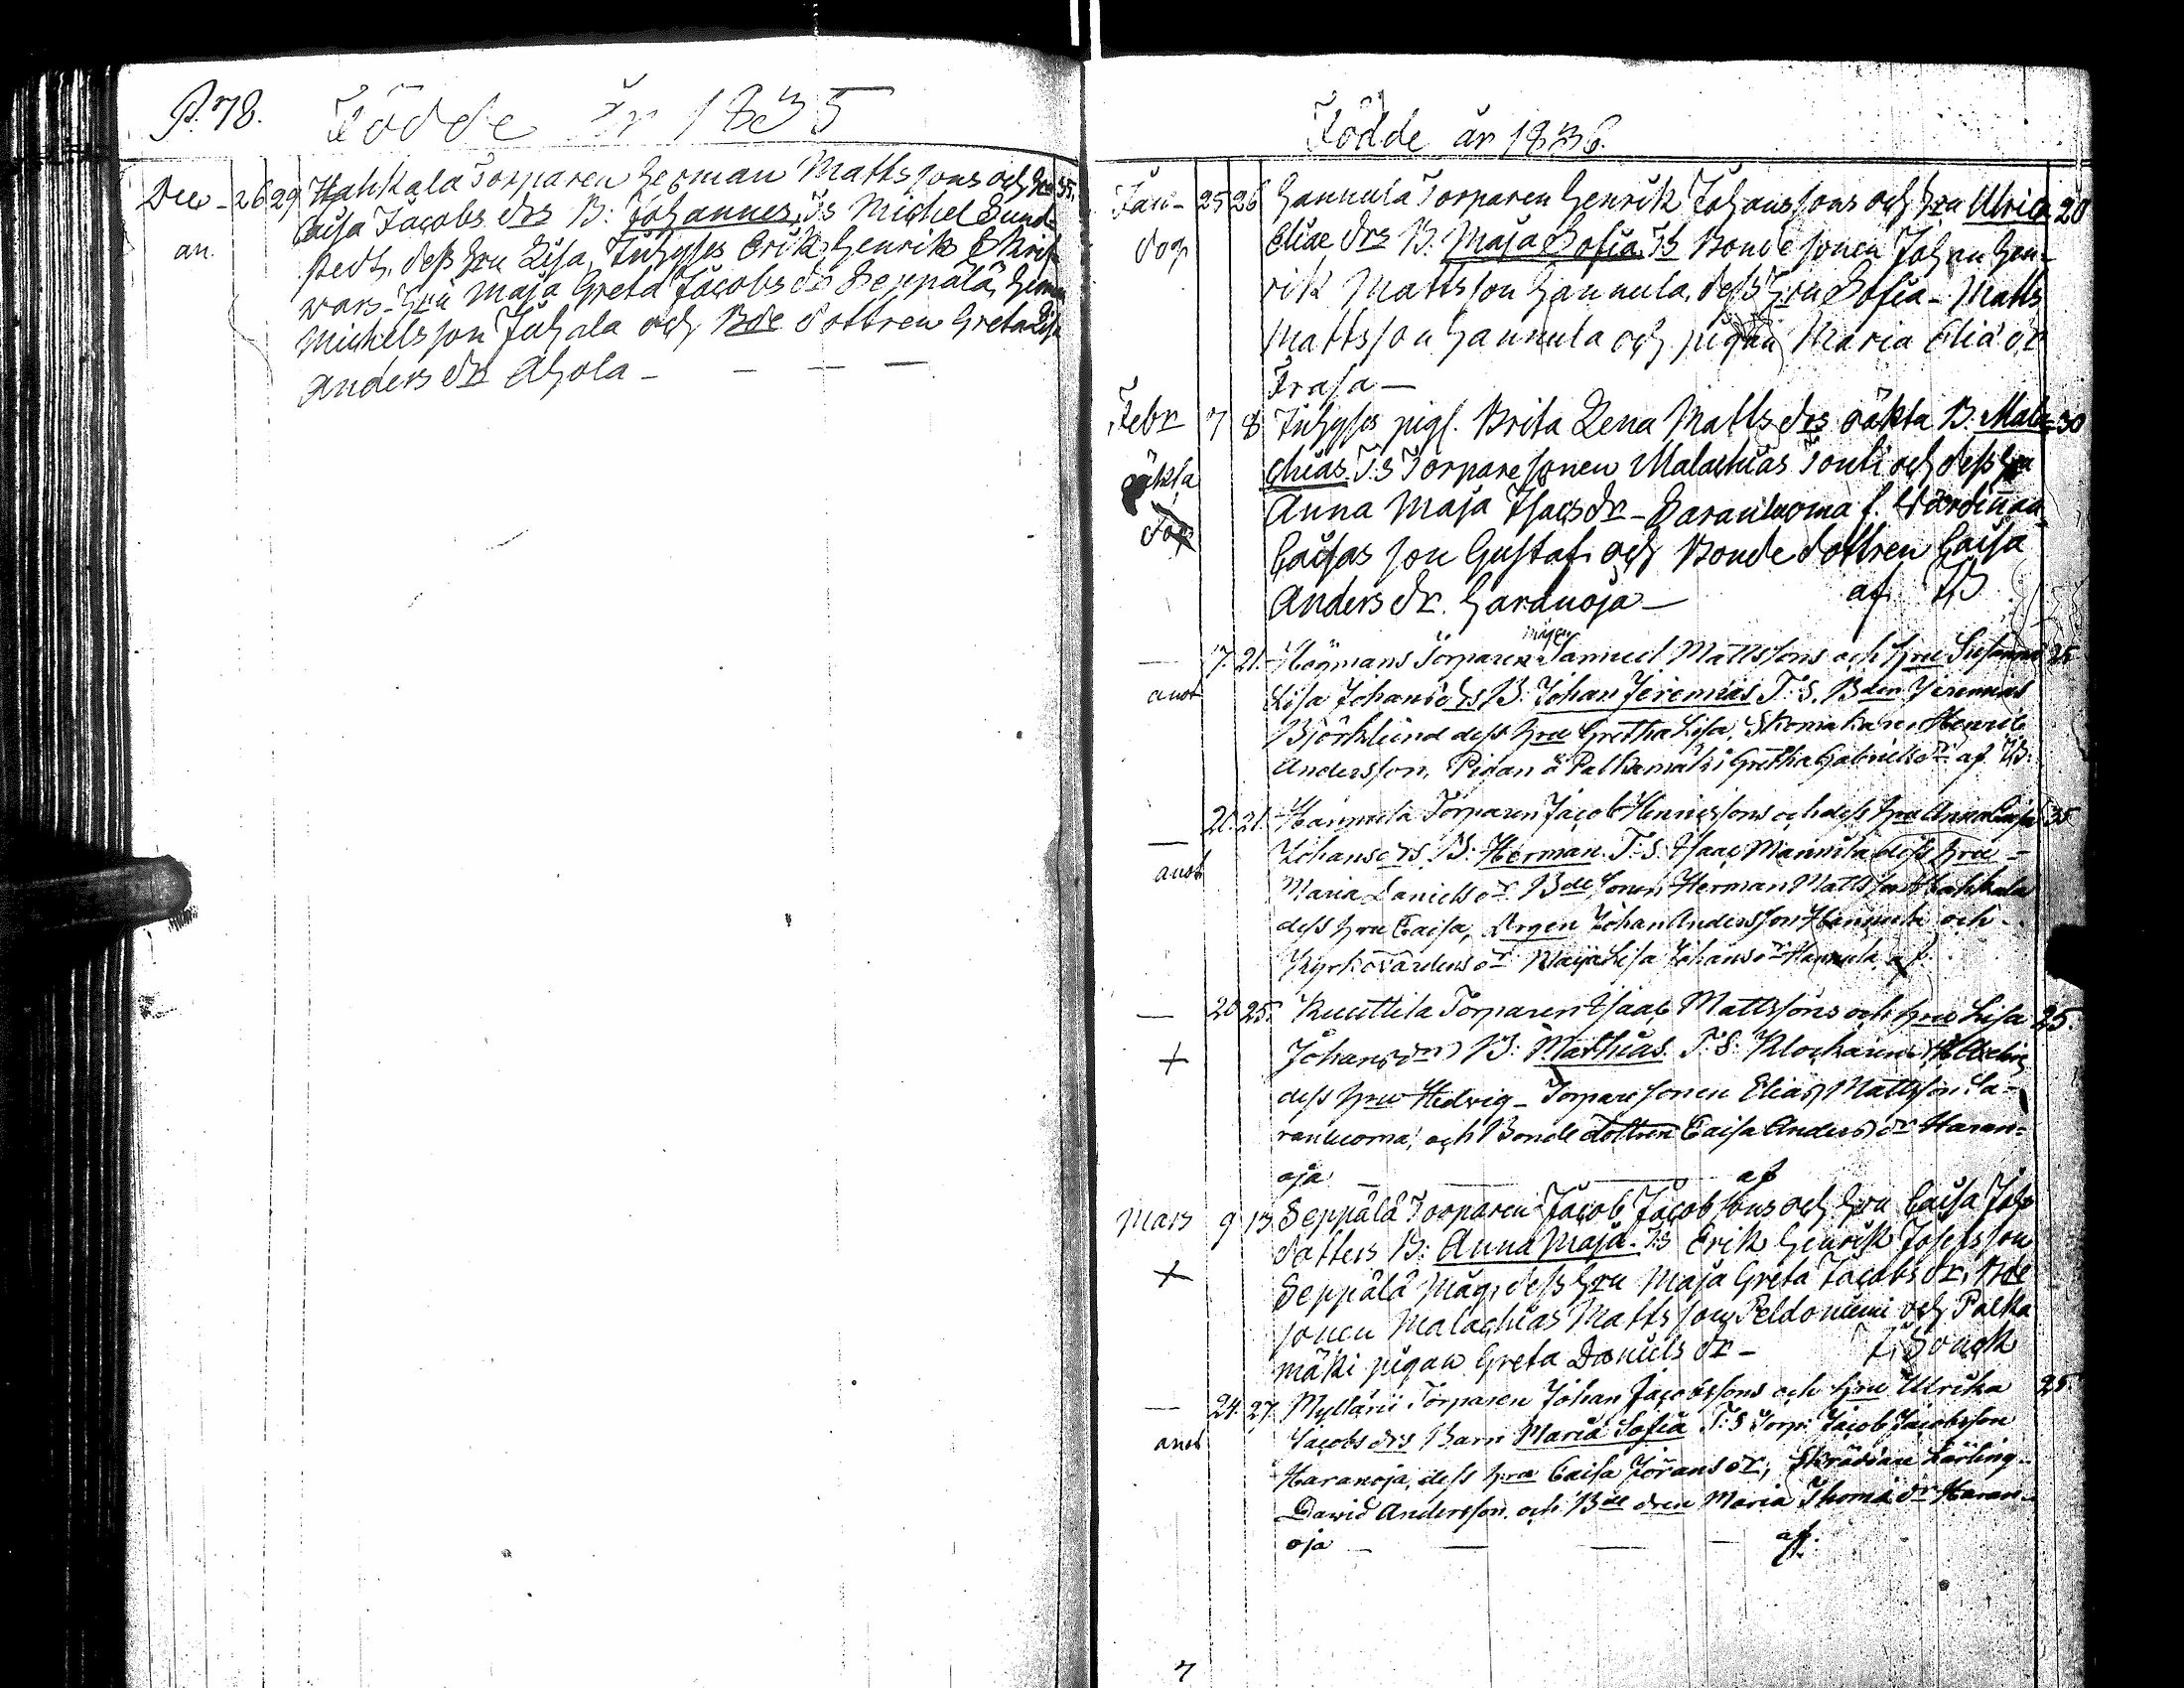 P. 78.
Födde År 1835
Dec - 26 29 Hahkala Torparen Herman Mattssons och hu 35.
Caisa Jacobs drs B. Johannes, T.S Michel Sund-
an. stedt, dess hru Lisa, Juhyses Erik Henriks
wars hru Maja Greta Jacobs dr Seppälä,
Michelsson Juhala och Bde dottren Greta Lisa
Anders dr Ahola -
Födde år 1836.
Jan - 25 26 Hannula Torparen Henrik Johanssons och hru Ulrica 20
död Eliae drs B. Maja Sofia. TS Bonde sonen Johan Hen-
rik Mattsson Hannula, dess hru Sofia - Matts
Mattsson Hannula och pigan Maria Elia dr
Frasa -
Febr 7 8 Juhyses pig. Brita Lena Matts drs oäkta B. Mala- 30
oäkta chias. T.S Torparesonen Malachias Touli och dess hru
Anna Maja Isacs dr - Saranluoma f. Värdinnan
död Caisas son Gustaf och Bonde dottren Caisa
Anders dr. Haranoja - af ZS
— 7. 21. Högmans Torparen mågen Samuel Mattssons och hru Susanna 25
anot Lisa Johans drs B: Johan Jeremias T.S. Bden Jeremias
Björklund dess hru Gretha Lisa, Skomakaren Henric
Andersson, Pigan å Palkamäki Gretha Gabriels dr af ZS.
— 20. 21. Hannula Torparen Jacob Henricssons och dess hru Anna Caisa 35
Johans drs B: Herman. T.S. Isaac Mannila dess hru
anot Maria Daniels dr Bde sonen Herman Mattsson Hahkala
dess hru Caisa, Drgen Johan Andersson Hannula och
Kyrkovärdens dr Maja Lisa Johans dr Hannula af.
— 20 25. Kuuttila Torparen Isaac Mattssons och hru Lisa 25.
+ Johans drs B: Mathias. T.S. Klockaren
dess hru Hedvig - Torpare sonen Elias Mattsson Sa-
ranluoma, och Bonde dottren Caisa Anders dr Haran-
oja — af
Mars 9 13. Seppälä Torparen Jacob Jacobsons och hru Caisa Joh
dotters B: Anna Maja. T.S Erik Henrik Josefsson
+ Seppälä Måg, dess hru Maja Greta Jacobs dr, Bde
sonen Malachias Mattsson Peldoniemi och Palka
mäki pigan Greta Daniels dr - Z. Sonck
— 24. 27. Myllärii Torparen Johan Jacobssons och hru Ulrika 25.
anot Jacobs drs Barn Maria Sofia T.S Torp: Jacob Jacobsson
Haranoja, dess hru Caisa Jörans dr, Skräddare Lärling
David Andersson och Bde dren Maria Thoma dr Haran-
oja — af.
7